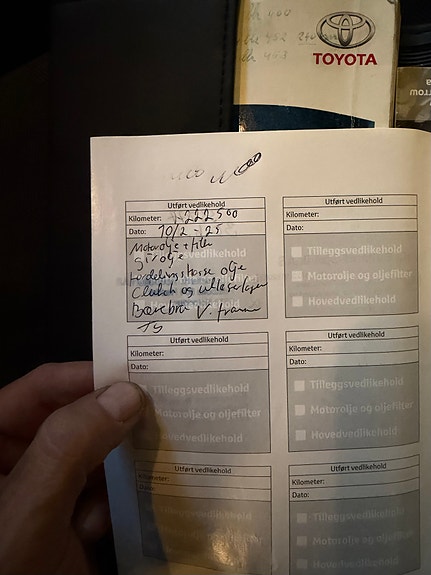 TOYOTA
Utført vedlikehold
Kilometer: 222500
Dato: 10/2-25
Motorolje + filter
Girolje
Fordelingskasse olje
Clutch og utløselager
Bærebru V. fram
Utført vedlikehold
Kilometer:
Dato:
Tilleggsvedlikehold
Motorolje og oljefilter
Hovedvedlikehold
Utført vedlikehold
Kilometer:
Dato:
Tilleggsvedlikehold
Motorolje og oljefilter
Hovedvedlikehold
Utført vedlikehold
Kilometer:
Dato:
Tilleggsvedlikehold
Motorolje og oljefilter
Hovedvedlikehold
Utført vedlikehold
Kilometer:
Dato:
Tilleggsvedlikehold
Motorolje og oljefilter
Hovedvedlikehold
Utført vedlikehold
Kilometer:
Dato:
Tilleggsvedlikehold
Motorolje og oljefilter
Hovedvedlikehold